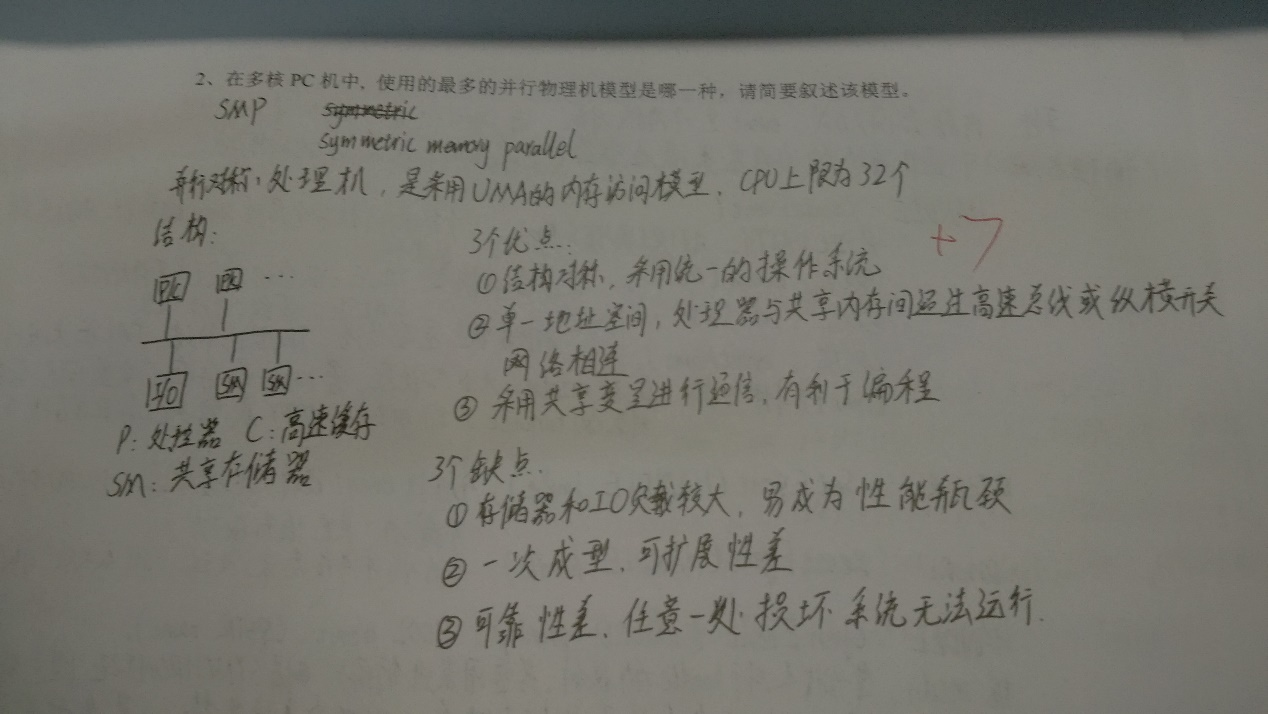 2、在多核 PC 机中，使用的最多的并行物理机模型是哪一种，请简要叙述该模型。
SMP symmetric
symmetric memory parallel
并行对称处理机，是采用UMA的内存访问模型，CPU上限为32个
+7
结构：
P/C P/C ...
I/O SM SM ...
P：处理器 C：高速缓存
SM：共享存储器
3个优点：
①结构对称，采用统一的操作系统
②单一地址空间，处理器与共享内存间通过高速总线或纵横开关
网络相连
③采用共享变量进行通信，有利于编程
3个缺点.
①存储器和IO负载较大，易成为性能瓶颈
②一次成型，可扩展性差
③可靠性差，任意一处损坏系统无法运行.